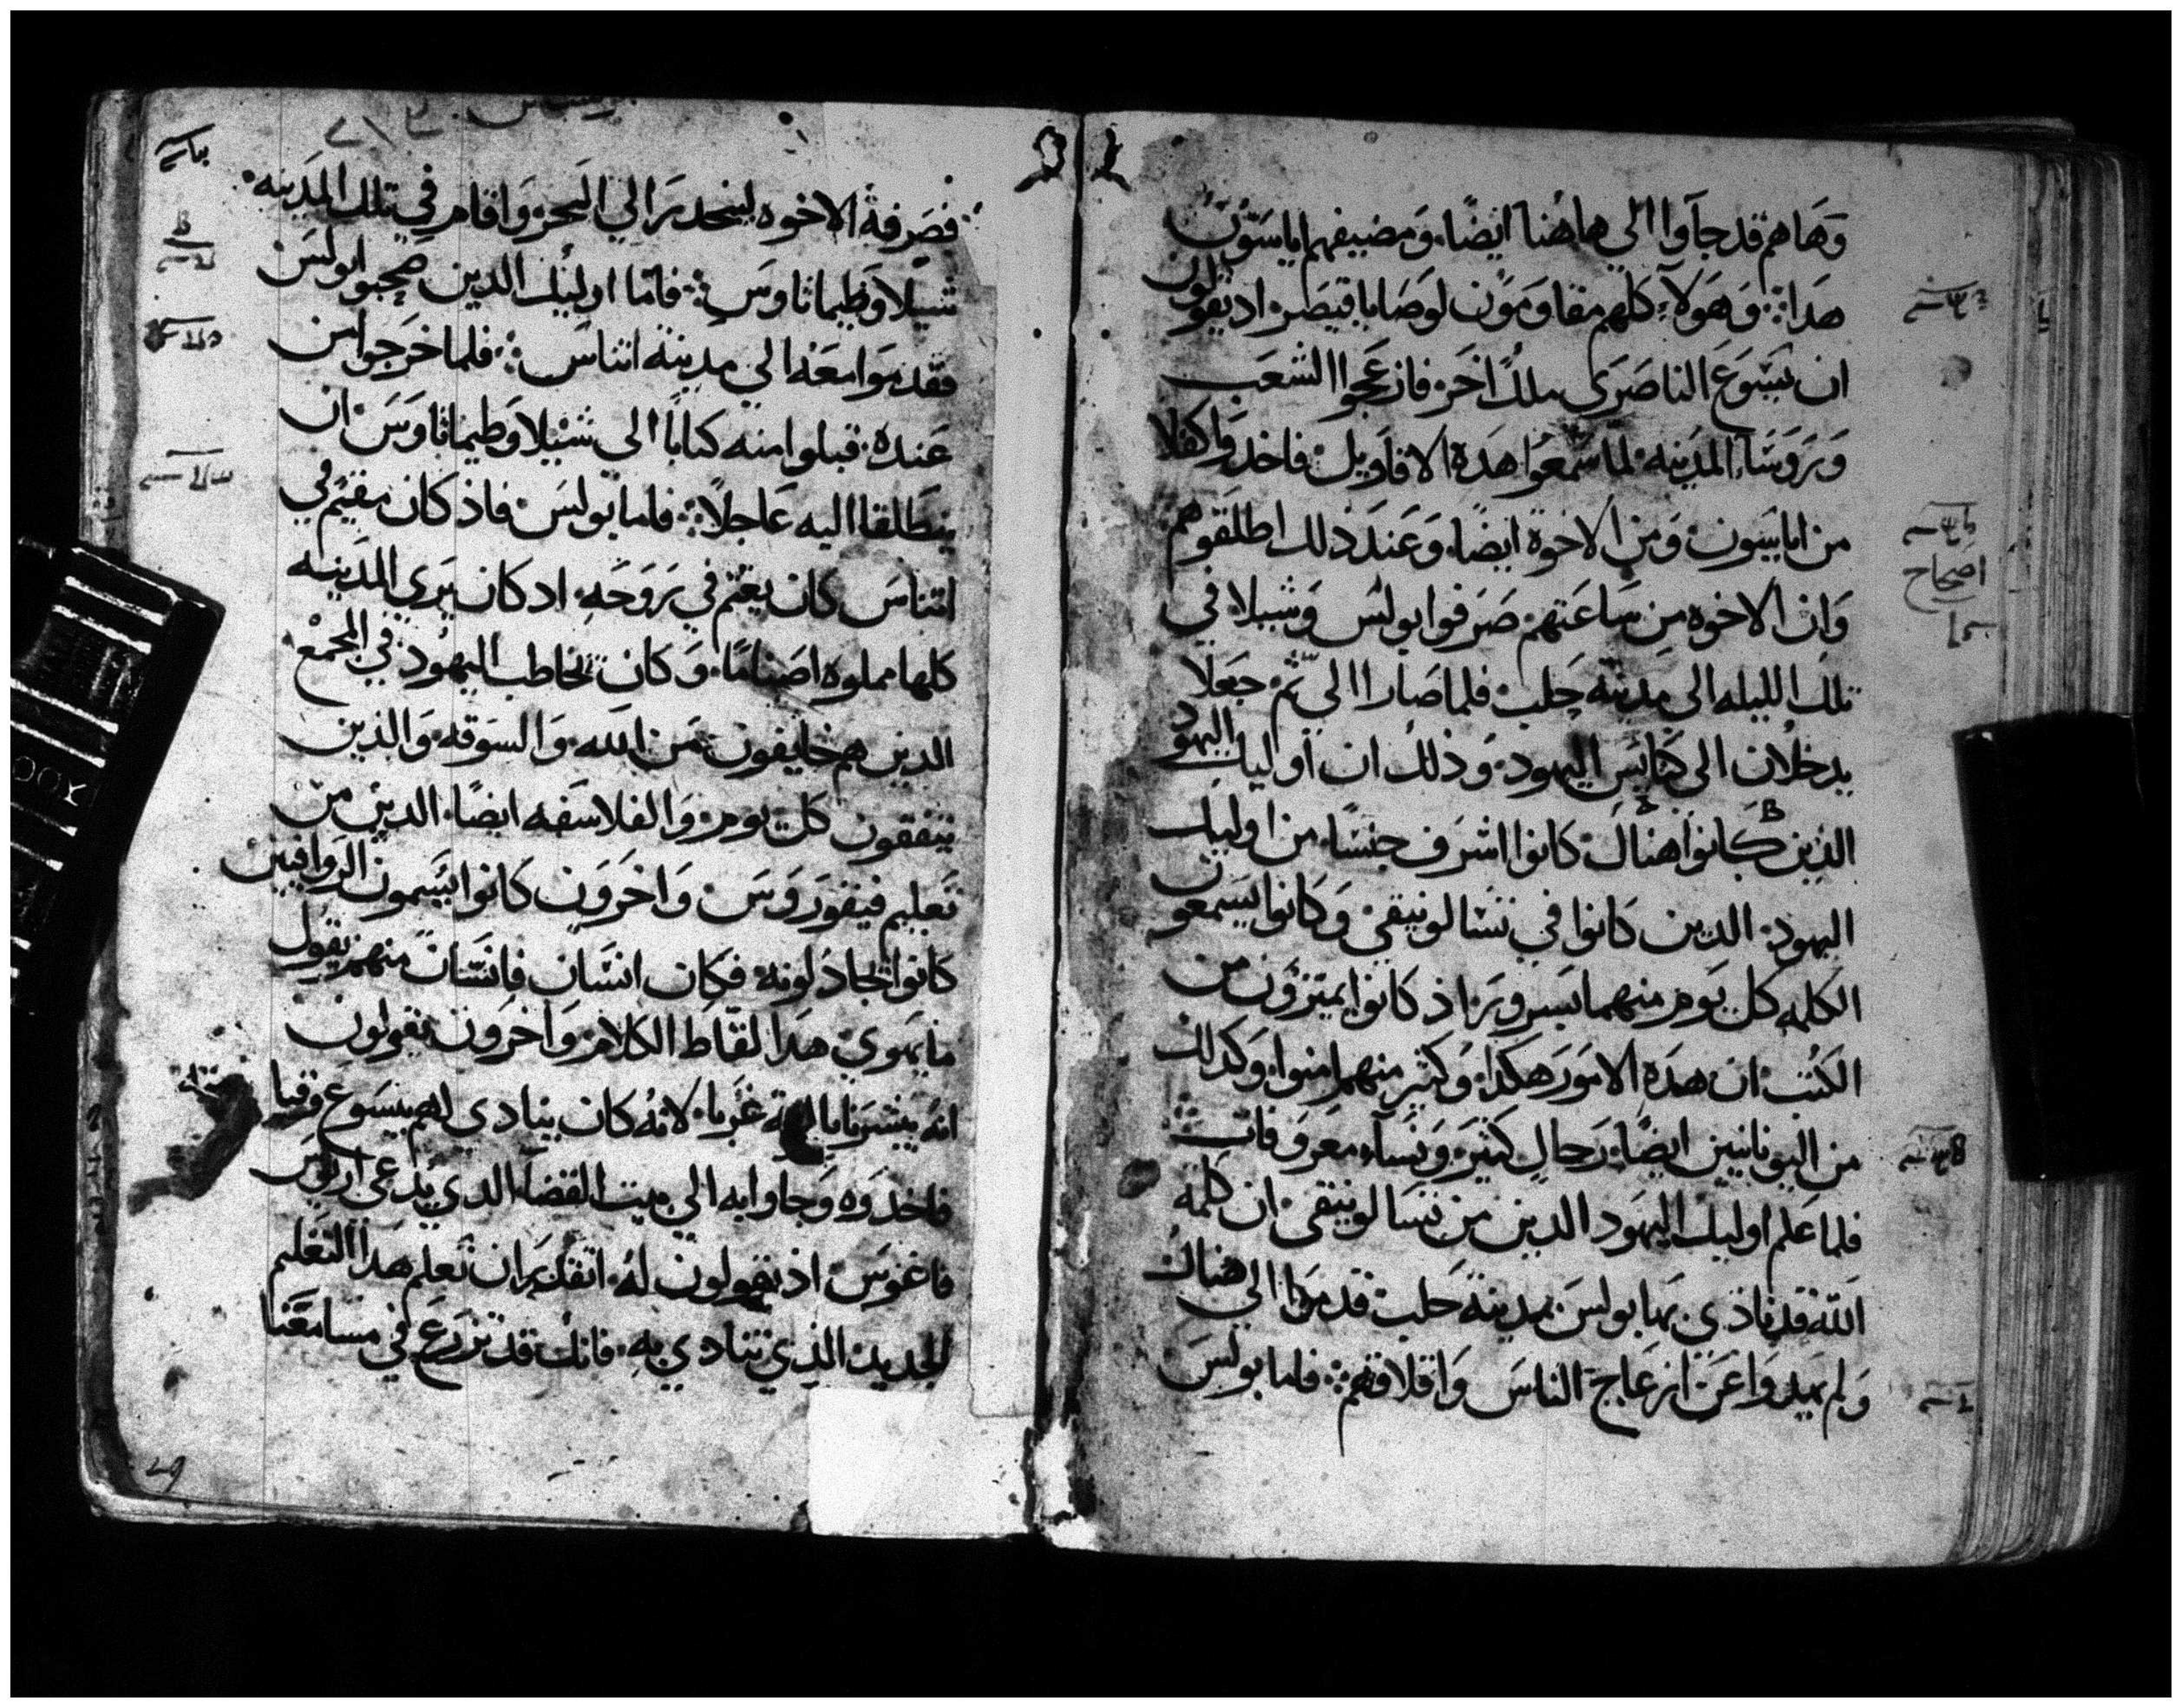 وَهَاهم قد جآوا الي هاهُنا ايضًا. وَمضيفهم اياسَون
هدَا: وَهَوُلآءِ كلهم مقاومَوُن لوصَايا قيصَر. اد يقولون
ان يسَوع الناصَرَى ملكً اخَر. فازعَجوا الشعَب
وَرَوسَآ المدَينه. لما سَّمعوُا هدَة الاقاوَيل. فاخدَوا كفلا
من اياسَون. وَمِن الاخوة ايضًا. وَعَندَ ذلك اطلقوهم
وَان الاخوه مِن سَاعَتهم. صَرَفوا بولسَ وَشيلا في
تلكَ الليله الى مدَينة حَلب. فلما صَارا الي ثَم. جعَلا
يدخلان الى كنايسَ اليهود. وَذلك ان اوليك اليهود
الذين كانوا هناك. كانوا اشرَف جنسًا. من اوليك
اليهود. الدين كانوا في تسَالونيقي وَكانوا يسَمعون
الكلمه كل يَوم منهما بسرورَ. اذ كانوا يميزَون من
الكتب. ان هدَه الامَور هكدَا. وَكثير منهم امنوا. وَكدلك
من اليونانيين ايضًا. رَجال كثيرَ. وَنسَآء معروَفات:
فلما عَلم اوليك اليهَود الدين من تسَالونيقي. ان كلمة
اللَّه قد نادَي بها بولسَ. بمدينة حَلب. قدمَوا الي هناك
وَلم يهدوا عَن ازعَاج الناسَ وَاقلاقهم: فلما بولسَ
اصَحاح
فصَرفهُ الاخوه لينحدرَ الي البَحر. وَاقام في تلك المدَينه.
شيلا وَطيماثاوسَ: فامّا اوليك الدين صَحبوا بولسَ
فقدمَوا معَهُ الي مدينة اثناسَ: فلما خرَجوا من
عَنده. قبلوا منه كتابًا الى شيلا وَطيماثاوسَ. ان
ينطَلقا اليه عَاجلاً: فاما بولسَ. فاذ كان مقيم في
اثناسَ كان يغتم في رَوَحَهِ. اد كان يَرَى المدَينه
كلها مملوه اصَنامًا. وَكان يخاطب اليهُود في المجَمعْ
الدين هم خايفون من الله. وَالسَوقه. وَالذين
يتفقون كل يوم. وَالفلاسَفه ايضًا. الدين من
تعَليم فيقورَوسَ. وَاخرَوَن كانوا يسَمون الروَاقيين
كانوا يجادَلونه. فكان انسَان فانسَان منهم يقول
ما يهوى هدَا لقّاط الكلام. وَاخرَون يقولون
انهُ يبشرَنا غرَبا. لانهُ كان ينادى لهم بيسَوع وَقيا
فاخدَوه وَجاوا به الي بيت القضا. الدي يدعَى اريوسَ
فاغوسَ. اد يقولون لهُ. اتقدَرَ ان تعَلم هدَا التعَليم
الجديد. الذي تنادي به. فانك قد تزرَع في مسَامعَنا